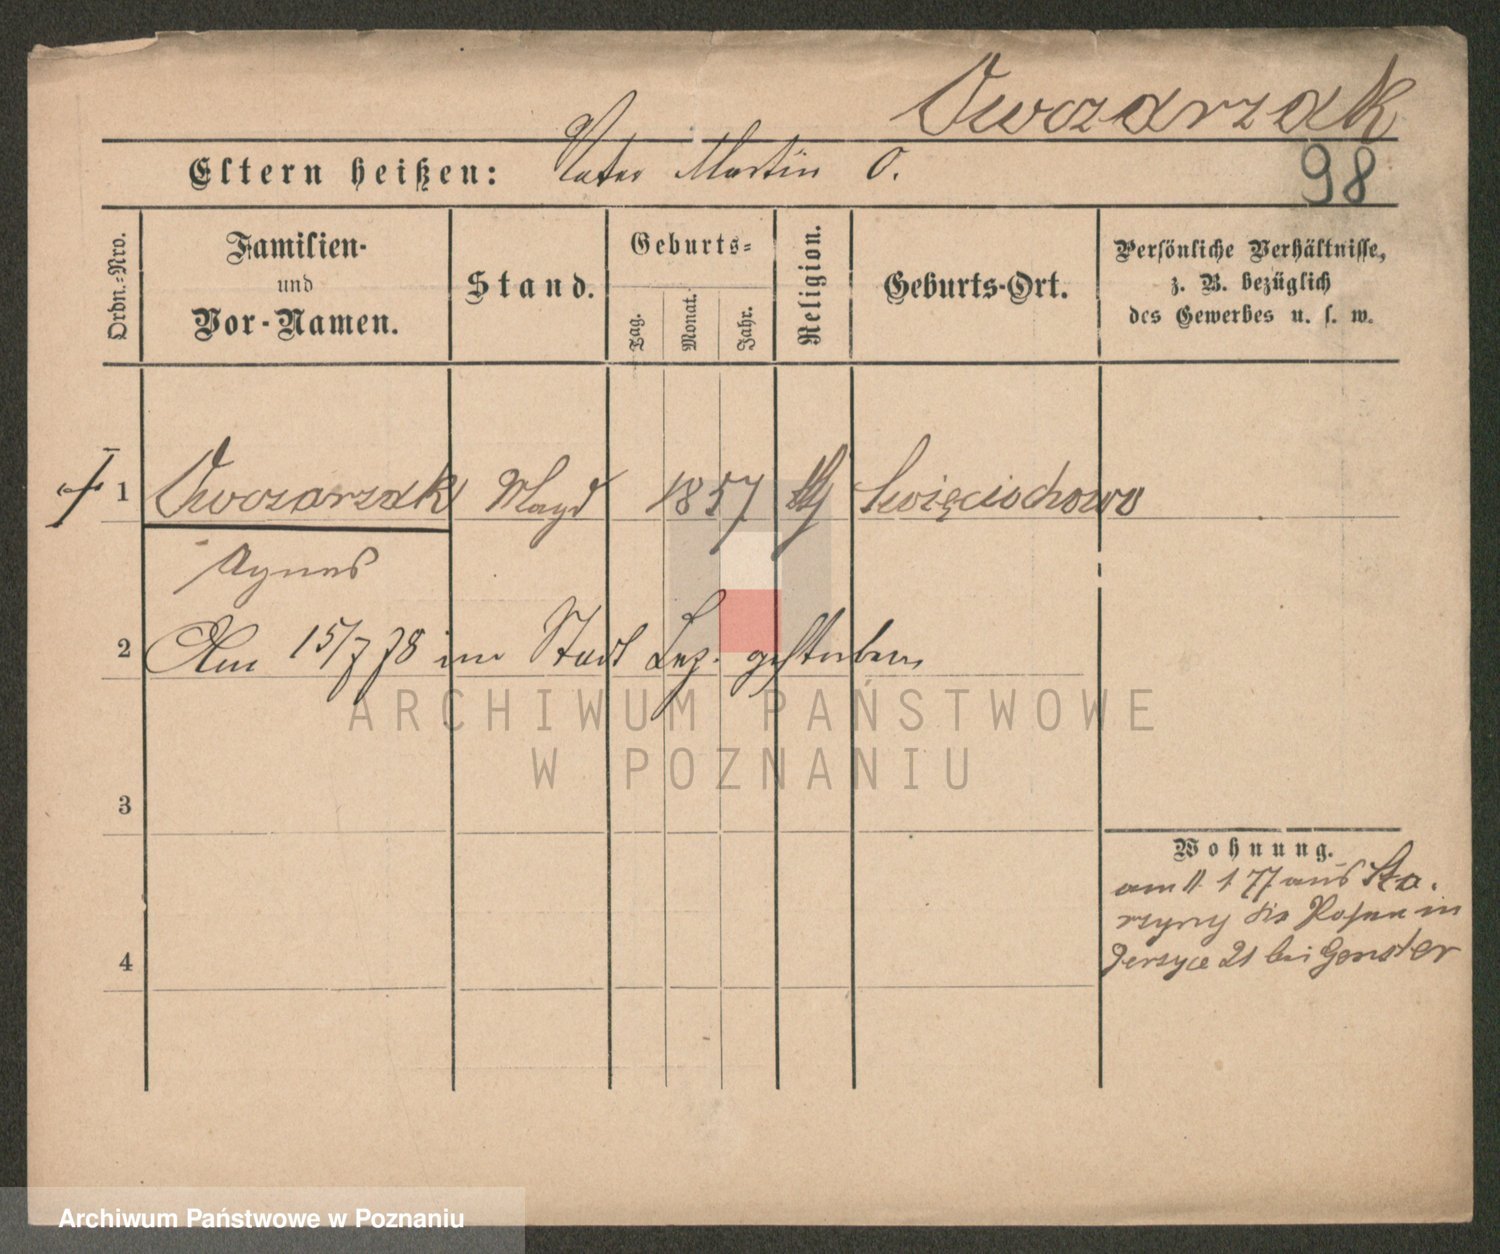 Owczarzak
Eltern heißen: Vater Martin O.
98
Ordn.-Nro.
Familien-
und
Vor-Namen.
Stand.
Geburts-
Tag.
Monat.
Jahr.
Religion.
Geburts-Ort.
Persönliche Verhältnisse,
z. B. bezüglich
des Gewerbes u. s. w.
1 Owczarzak Magd 1857 Swięciochowo
Agnes
2 Am 15/7 78 im Stadt Laz. gestorben
ARCHIWUM PAŃSTWOWE
W POZNANIU
3
Wohnung.
am 11 1 77 aus Sta.
Posen in
4
Jersyce 21 bei Genster
Archiwum Państwowe w Poznaniu